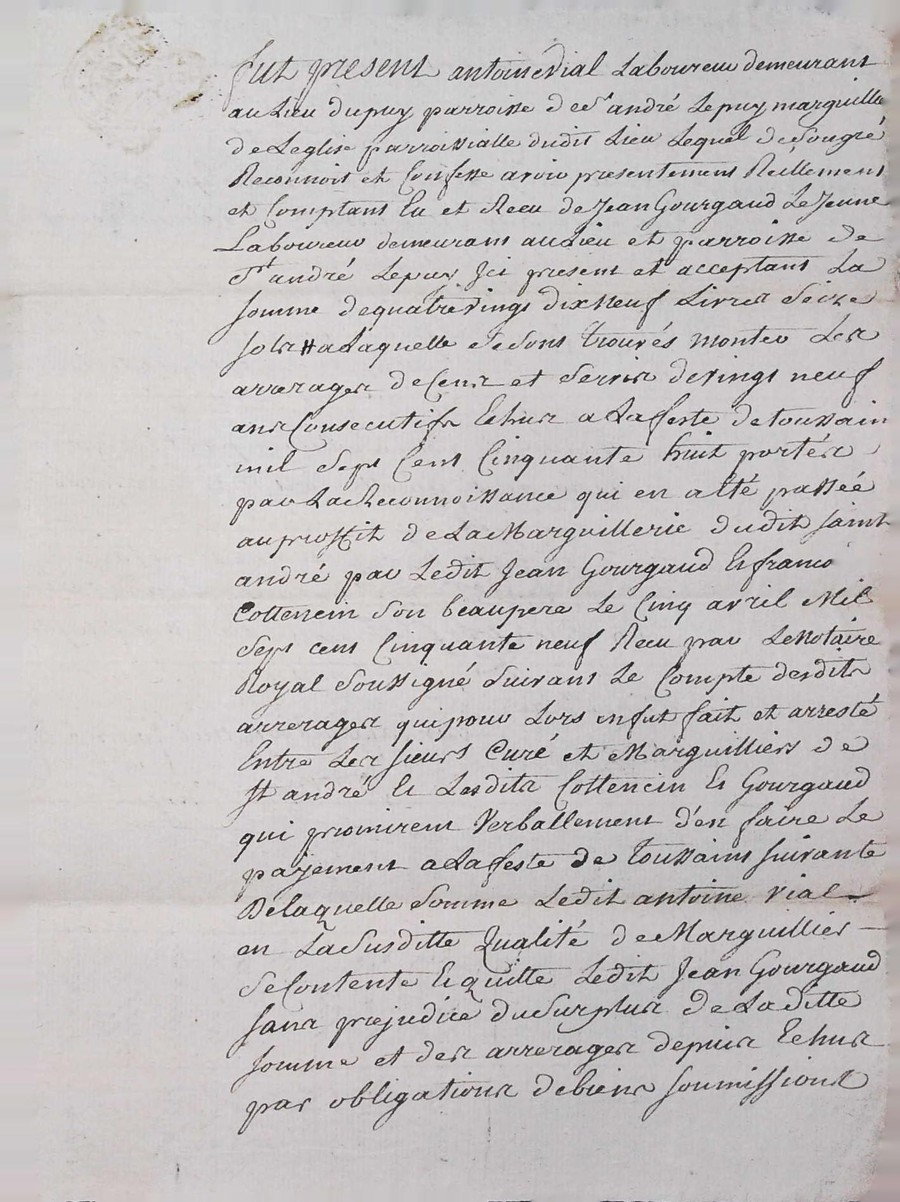 fut present antoine vial Laboureur demeurant
au Lieu dupuy parroisse de St andré Lepuy marguillier
de Leglise parroissialle dudit Lieu Lequel de Songré
Reconnoit et Confesse avoir presentement Reellement
et Comptant Eu et Receu de Jean Gourgaud Le Jeune
Laboureur demeurant au Lieu et parroisse de
St andré Lepuy Jci present et acceptant La
somme de quatrevingt dixneuf Livres Seize
sols a Laquelle se sont trouvés monter Les
arrerages de Cens et Servis de vingt neuf
ans Consecutifs Echus a La feste de toussain
mil Sept Cent Cinquante huit portés
par La Reconnoissance qui en a Eté passée
au proffit de La Marguillerie dudit saint
andré par Ledit Jean Gourgaud Et francois
Cottencin Son beaupere Le Cinq avril Mil
Sept cent Cinquante neuf Receu par Le Notaire
Royal Soussigné Suivant Le Compte desdits
arrerages qui pour Lors en fut fait et arresté
Entre Les sieurs Curé et Marguilliers de
St andré Et Lesdits Cottencin Et Gourgaud
qui promirent Verballement d'en faire Le
payement a La feste de Toussaint suivante
De laquelle Somme Ledit antoine vial
en La Susditte Qualité de Marguillier
se Contente Et quitte Ledit Jean Gourgaud
sans prejudice du Surplus de La ditte
somme et des arrerages depuis Echus
par obligations de biens soumissions